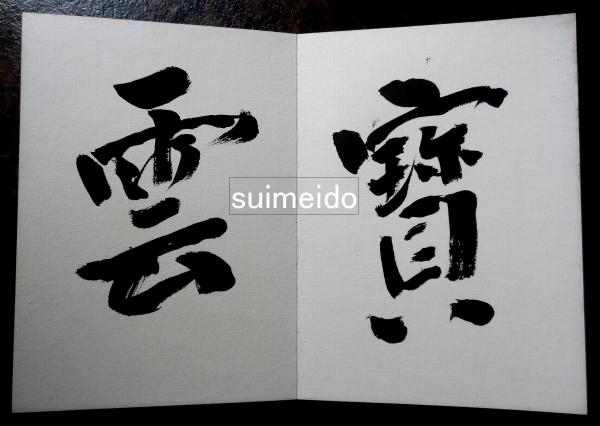 寶雲
suimeido